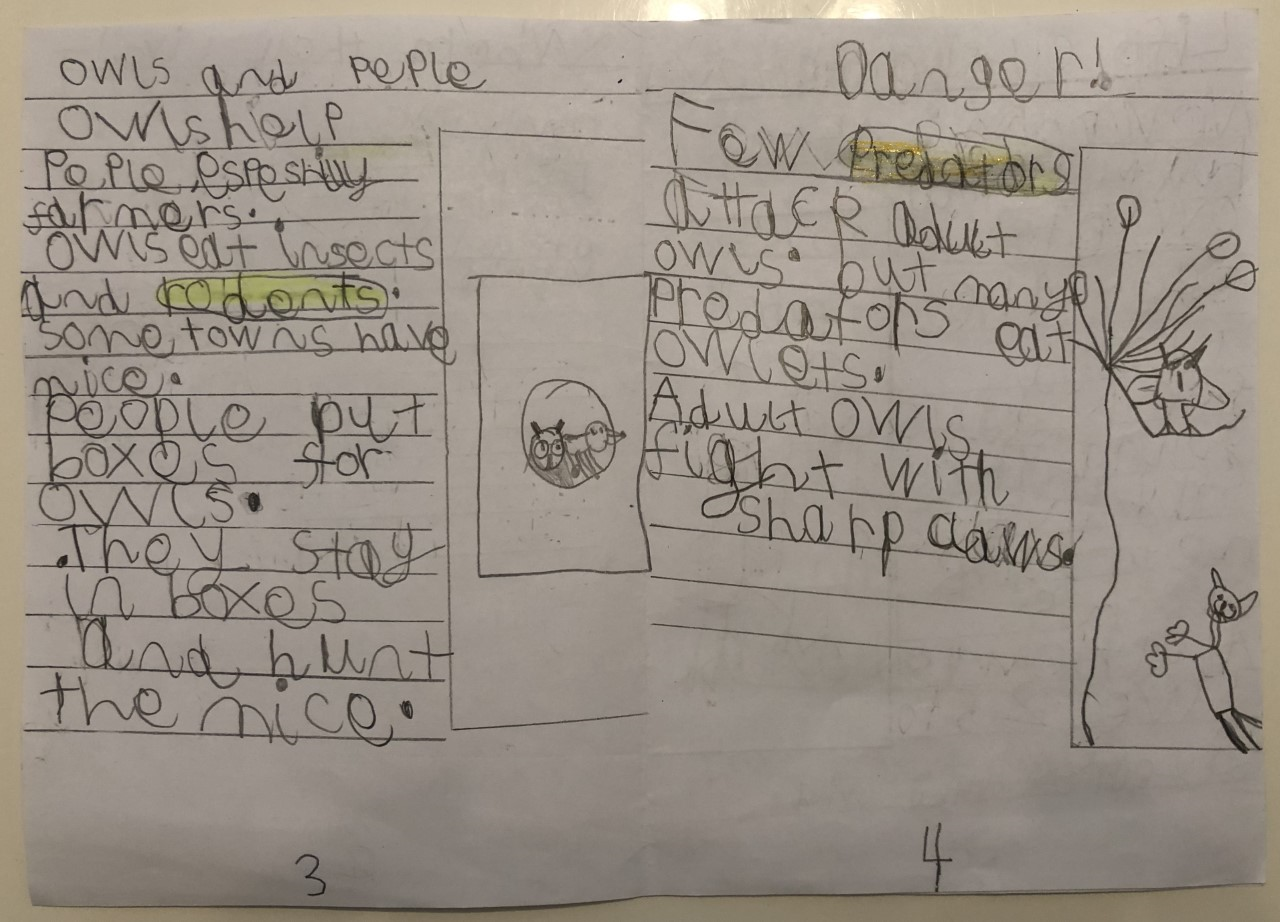 owls and peple
Owls help
Peple espeshily
farmers.
owls eat insects
and rodents.
some towns have
mice.
people put
boxes for
owls.
They stay
in boxes
and hunt
the mice.
3
Danger!
Few Predators
attack adult
owls. but many
Predators eat
owlets.
Adult owls
fight with
sharp claws.
4